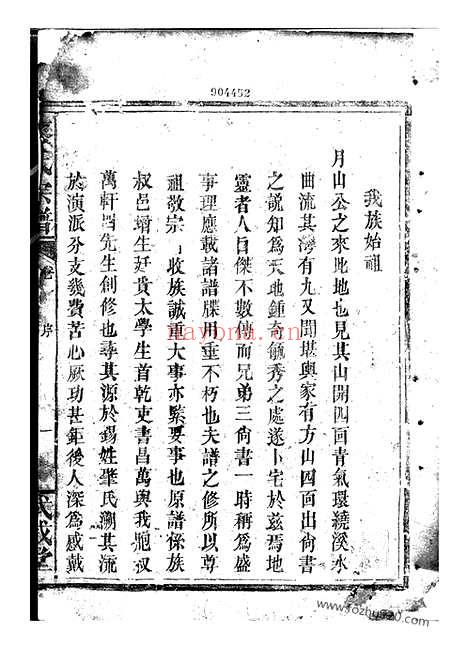 904452
我族始祖
月山公之來此地也見其山開四面青氣環繞溪水
曲流其灣有九又聞堪輿家有方山四面出尚書
之說知為天地鍾奇毓秀之處遂卜宅於茲焉地
靈者人自傑不數傳而兄弟三尚書一時稱為盛
事理應載諸譜牒用垂不朽也夫譜之修所以尊
祖敬宗收族誠重大事亦緊要事也原譜係族
叔邑增生廷貴太學生首乾吏書昌萬與我胞叔
萬軒四先生創修也尋其源於錫姓肇氏溯其流
於演派分支幾費苦心厥功甚鉅後人深為感戴
氏宗譜
序
一
堂
nayona.cn
www.fozhu920.com